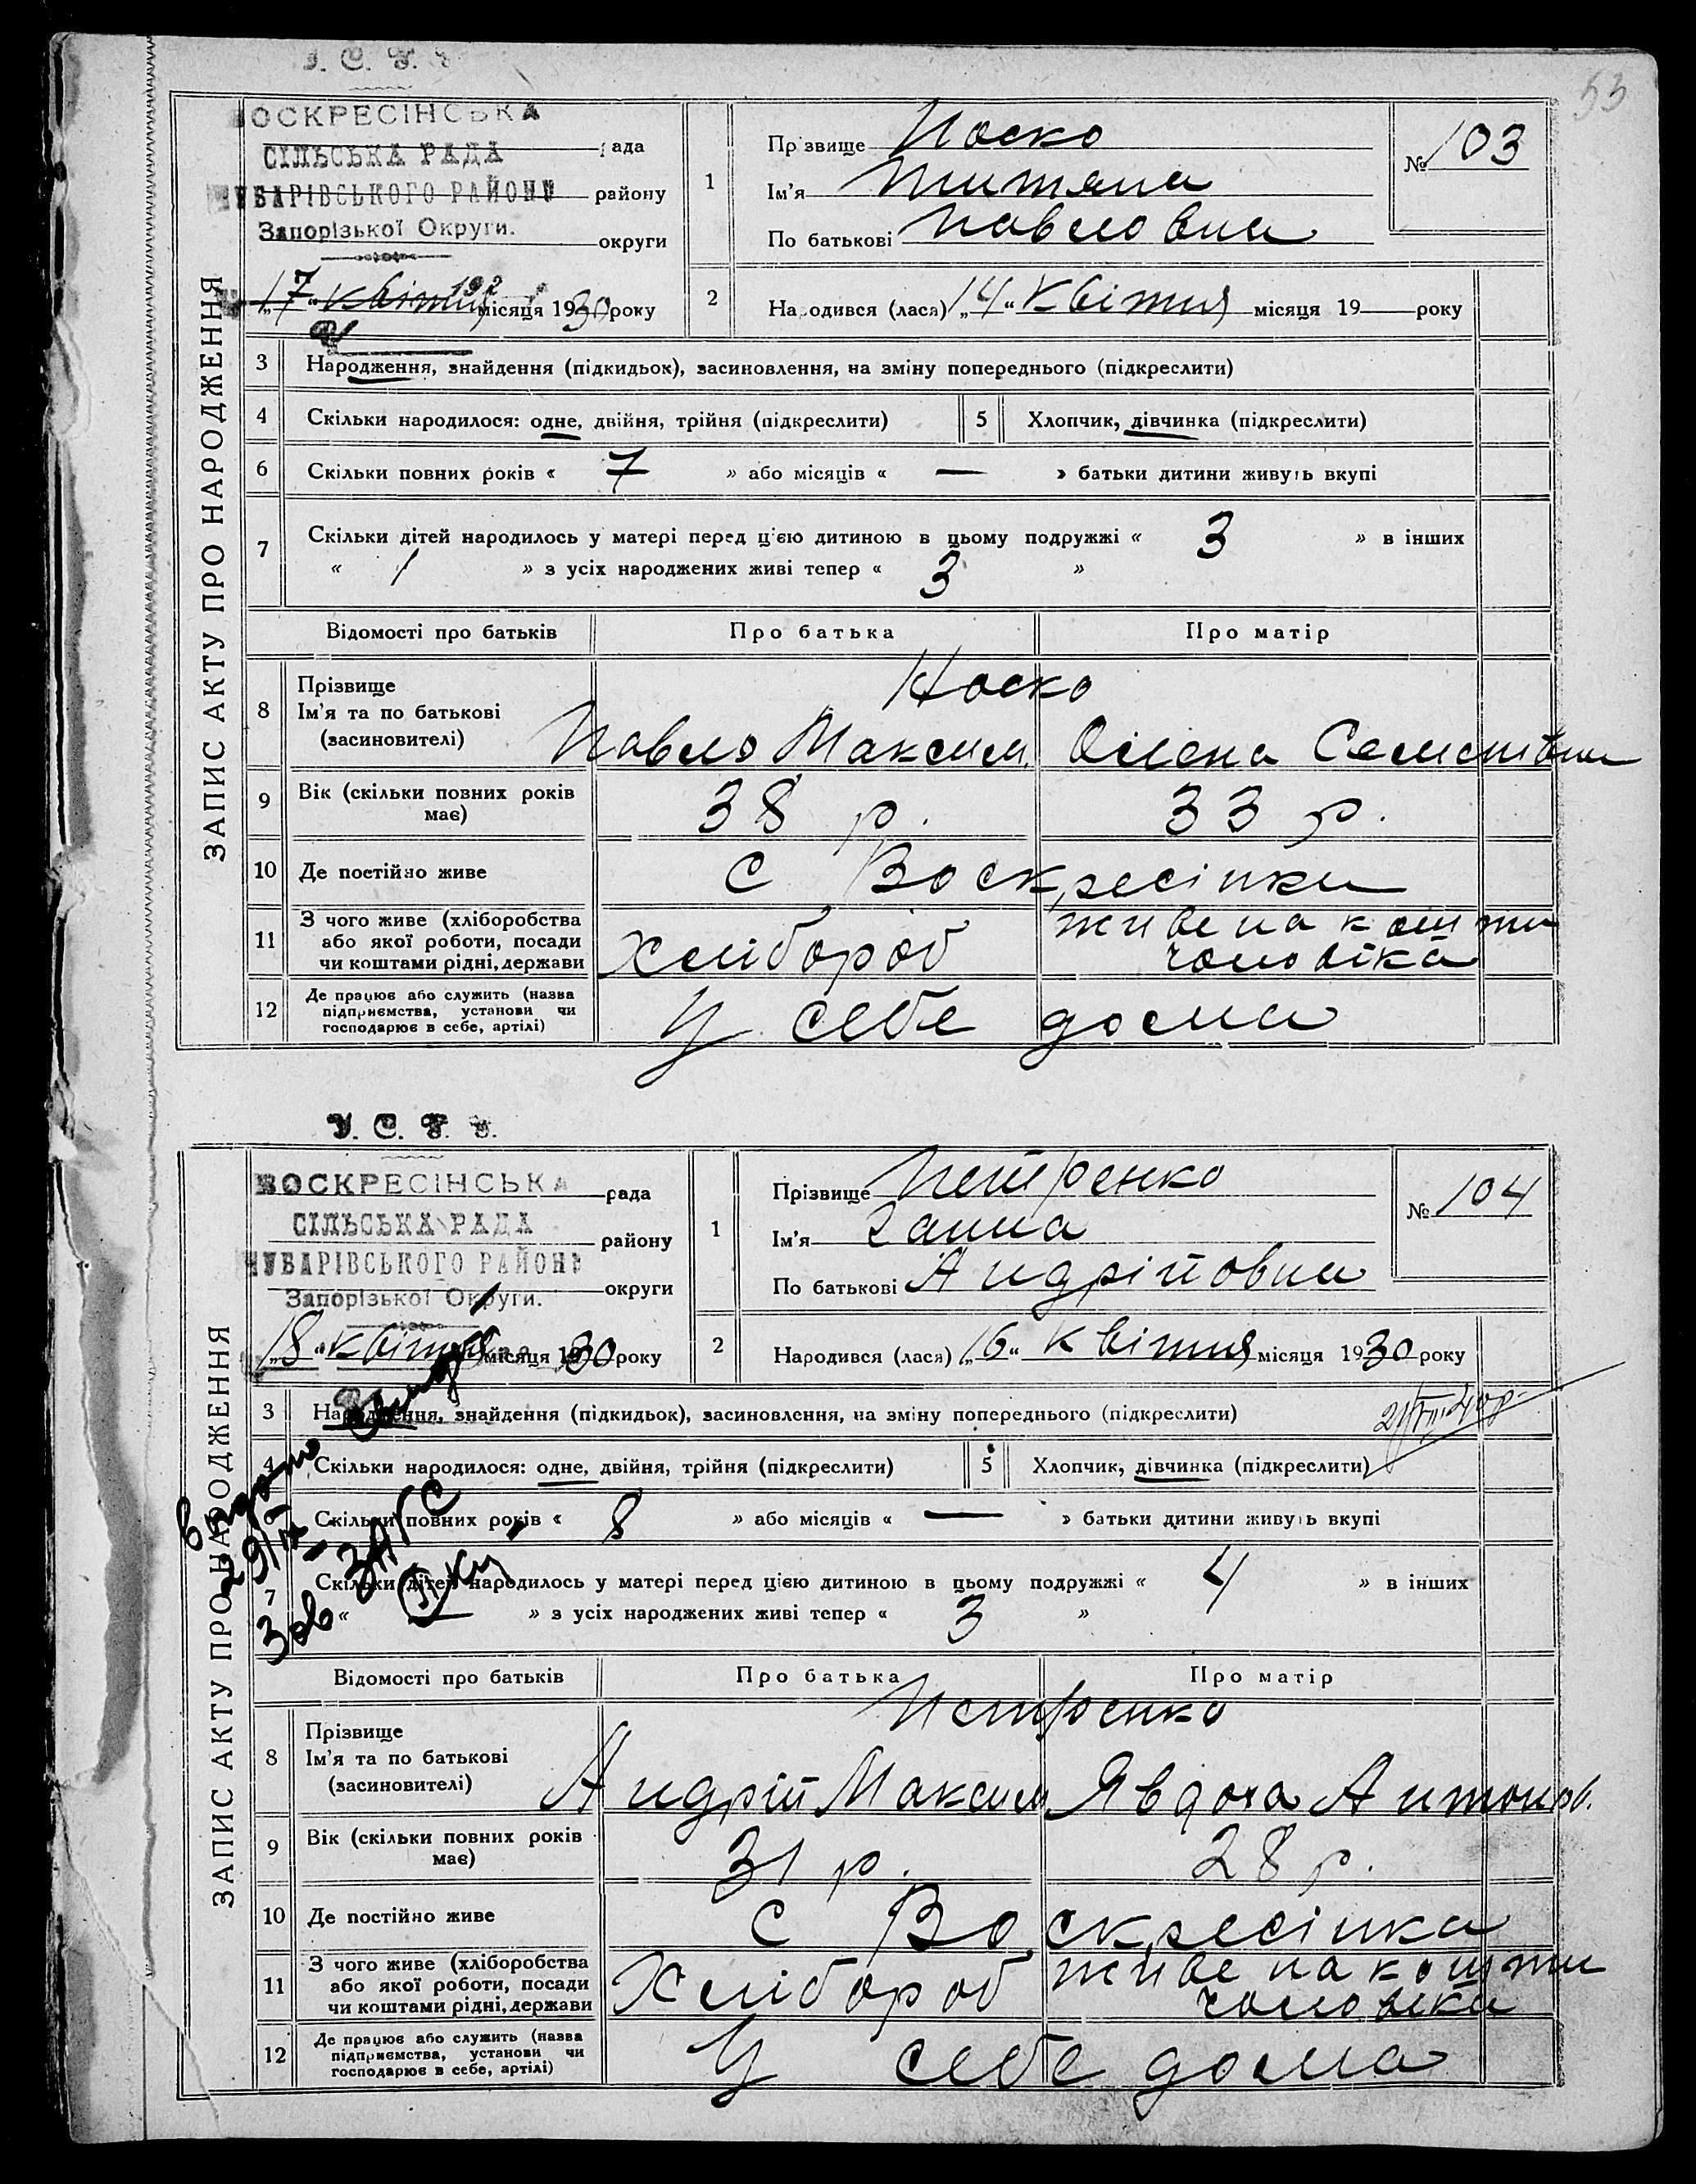 53
У. С. Р. Р.
ВОСКРЕСІНСЬКА
СІЛЬСЬКА РАДА рада
ЧУБАРІВСЬКОГО РАЙОНУ району
Запорізької Округи. округи
„17“ квітня місяця 1930 року
1
Прізвище Носко
Ім'я Титяна
По батькові Павловна
№ 103
2 Народився (лася) „14“ квітня місяця 19 року
ЗАПИС АКТУ ПРО НАРОДЖЕННЯ
3 Народження, знайдення (підкидьок), засиновлення, на зміну попереднього (підкреслити)
4 Скільки народилося: одне, двійня, трійня (підкреслити) 5 Хлопчик, дівчинка (підкреслити)
6 Скільки повних років « 7 » або місяців « — » батьки дитини живуть вкупі
7 Скільки дітей народилось у матері перед цією дитиною в цьому подружжі « 3 » в інших
« 1 » з усіх народжених живі тепер « 3 »
Відомості про батьків Про батька Про матір
8 Прізвище Носко
Ім'я та по батькові
(засиновителі) Павло Максим. Олена Семенівна
9 Вік (скільки повних років має) 38 р. 33 р.
10 Де постійно живе С Воскресінки
11 З чого живе (хліборобства
або якої роботи, посади
чи коштами рідні, держави Хлібороб живе на кошти
чоловіка
12 Де працює або служить (назва
підприємства, установи чи
господарює в себе, артілі) У себе дома
У. С. Р. Р.
ВОСКРЕСІНСЬКА рада
СІЛЬСЬКА РАДА району
ЧУБАРІВСЬКОГО РАЙОНУ
Запорізької Округи. округи
„18“ квітня місяця 1930 року
1
Прізвище Петренко
Ім'я Ганна
По батькові Андрійовна
№ 104
2 Народився (лася) „16“ квітня місяця 1930 року
ЗАПИС АКТУ ПРО НАРОДЖЕННЯ
3 Народження, знайдення (підкидьок), засиновлення, на зміну попереднього (підкреслити)
21/VIII 40р.
4 Скільки народилося: одне, двійня, трійня (підкреслити) 5 Хлопчик, дівчинка (підкреслити)
6 Скільки повних років « 8 » або місяців « — » батьки дитини живуть вкупі
7 Скільки дітей народилось у матері перед цією дитиною в цьому подружжі « 4 » в інших
« — » з усіх народжених живі тепер « 3 »
Видано
29/IX
Зав. ЗАГС
Відомості про батьків Про батька Про матір
8 Прізвище Петренко
Ім'я та по батькові
(засиновителі) Андрій Максим Явдоха Антонов.
9 Вік (скільки повних років має) 31 р. 28 р.
10 Де постійно живе С Воскресінка
11 З чого живе (хліборобства
або якої роботи, посади
чи коштами рідні, держави Хлібороб живе на кошти
чоловіка
12 Де працює або служить (назва
підприємства, установи чи
господарює в себе, артілі) У себе дома